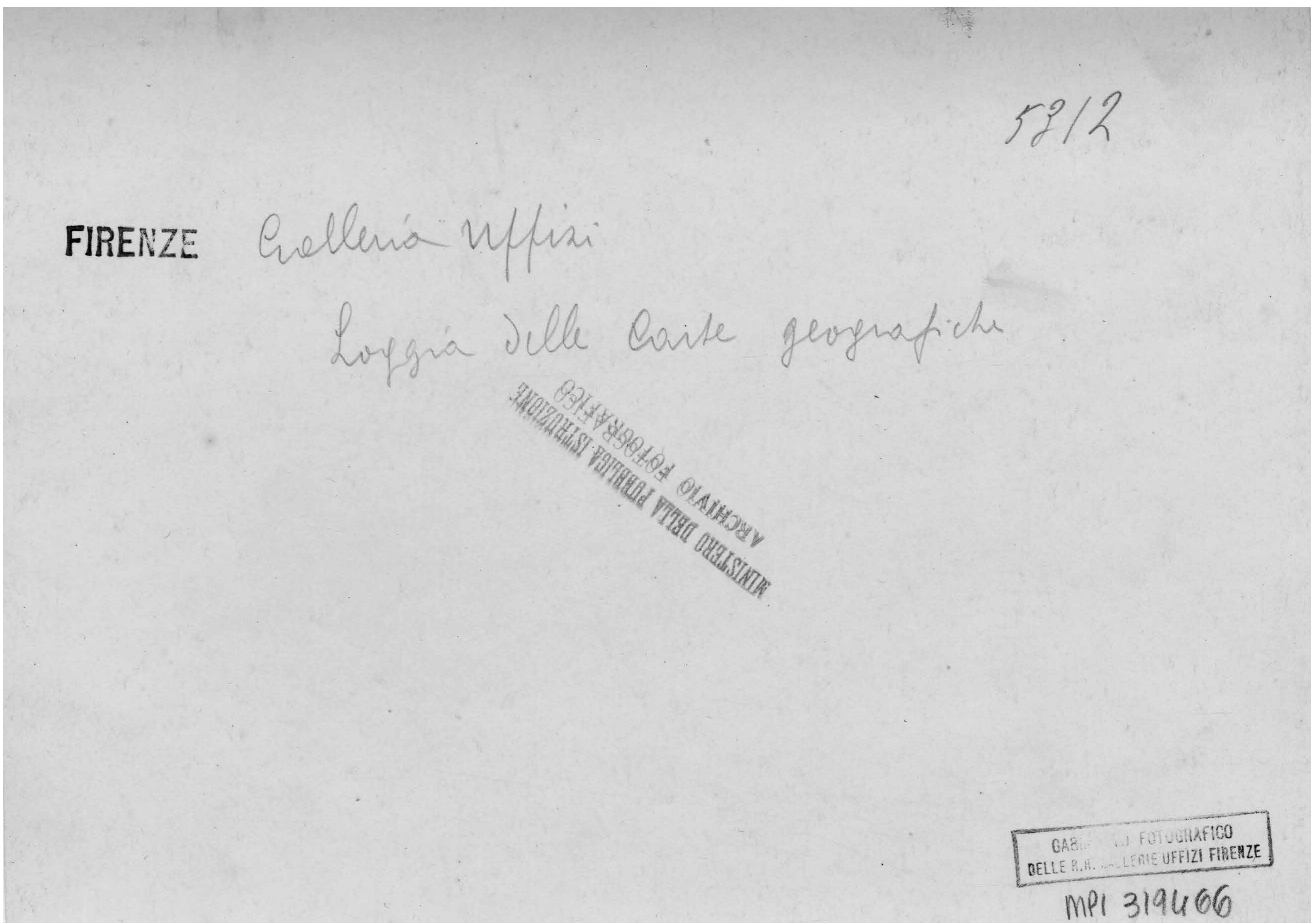 5712
FIRENZE Galleria Uffizi
Loggia delle Carte geografiche
MINISTERO DELLA PUBBLICA ISTRUZIONE
ARCHIVIO FOTOGRAFICO
FOTOGRAFICO
DELLE R.R. UFFIZI FIRENZE
MPI 319466